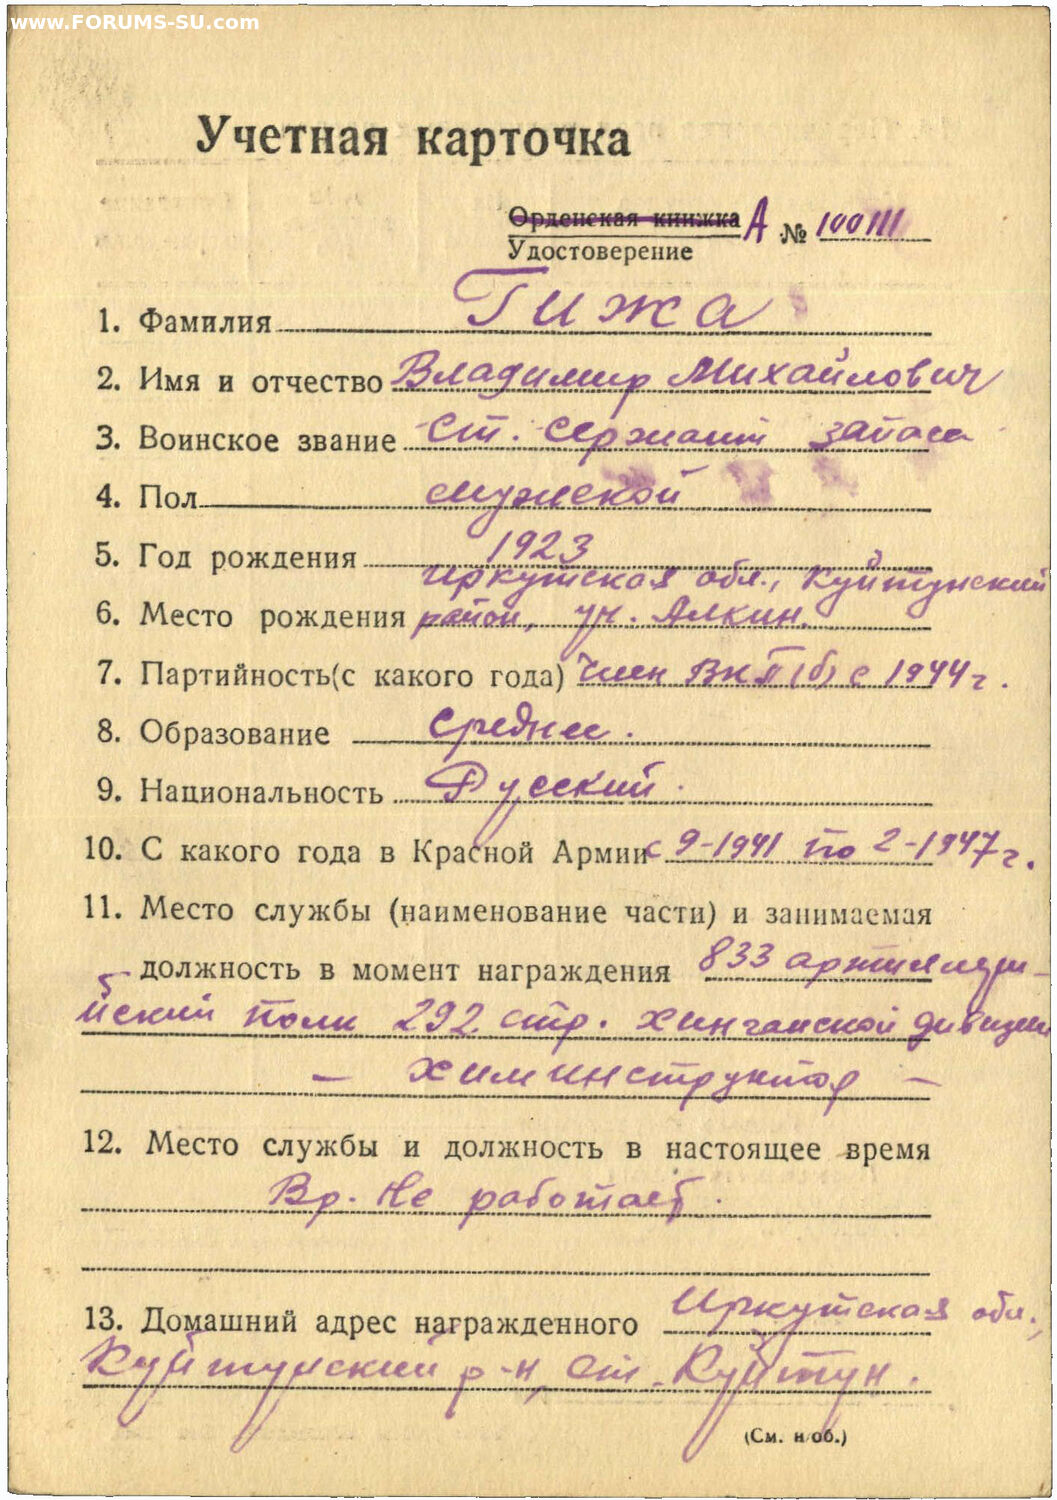 www.FORUMS-SU.com
Учетная карточка
Орденская книжка А № 100111
Удостоверение
1. Фамилия Гижа
2. Имя и отчество Владимир Михайлович
3. Воинское звание ст. сержант запаса
4. Пол мужской
5. Год рождения 1923
Иркутская обл., Куйтунский
6. Место рождения район, уч. Алкин.
7. Партийность(с какого года) Член ВКП(б) с 1944 г.
8. Образование среднее.
9. Национальность Русский.
10. С какого года в Красной Армии с 9-1941 по 2-1947 г.
11. Место службы (наименование части) и занимаемая
должность в момент награждения 833 артиллери-
йский полк 292 стр. Хинганской дивизии
— химинструктор —
12. Место службы и должность в настоящее время
Вр. не работает.
13. Домашний адрес награжденного Иркутская обл.,
Куйтунский р-н, ст. Куйтун.
(См. н/об.)